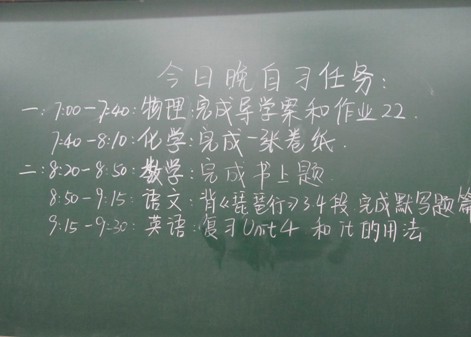 今日晚自习任务:
一: 7:00-7:40: 物理: 完成导学案和作业22.
7:40-8:10: 化学: 完成一张卷纸.
二: 8:20-8:50: 数学: 完成书上题.
8:50-9:15: 语文: 背《琵琶行》34段 完成默写题篇
9:15-9:30: 英语: 复习Unit4 和 it 的用法